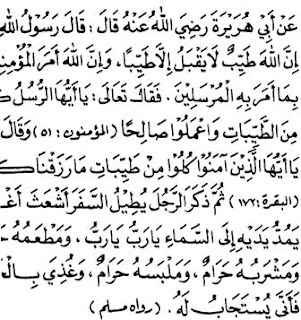 عَنْ أَبِي هُرَيْرَةَ رَضِيَ اللهُ عَنْهُ قَالَ : قَالَ رَسُوْلُ اللهِ
إِنَّ اللهَ طَيِّبٌ لَا يَقْبَلُ إِلَّا طَيِّبًا، وَإِنَّ اللهَ أَمَرَ الْمُؤْمِنِ
بِمَا أَمَرَ بِهِ الْمُرْسَلِيْنَ . فَقَالَ تَعَالَى : يَا أَيُّهَا الرُّسُلُ كُ
مِنَ الطَّيِّبَاتِ وَاعْمَلُوا صَالِحًا (المؤمنون : ٥١) وَقَالَ
يَا أَيُّهَا الَّذِيْنَ آمَنُوا كُلُوا مِنْ طَيِّبَاتِ مَا رَزَقْنَاكُ
(البقرة : ١٧٢) ثُمَّ ذَكَرَ الرَّجُلَ يُطِيْلُ السَّفَرَ أَشْعَثَ أَغْ
يَمُدُّ يَدَيْهِ إِلَى السَّمَاءِ يَا رَبُّ يَا رَبُّ، وَمَطْعَمُهُ حَ
وَمَشْرَبُهُ حَرَامٌ، وَمَلْبَسُهُ حَرَامٌ، وَغُذِيَ بِالْحَ
فَأَنَّى يُسْتَجَابُ لَهُ . (رواه مسلم)